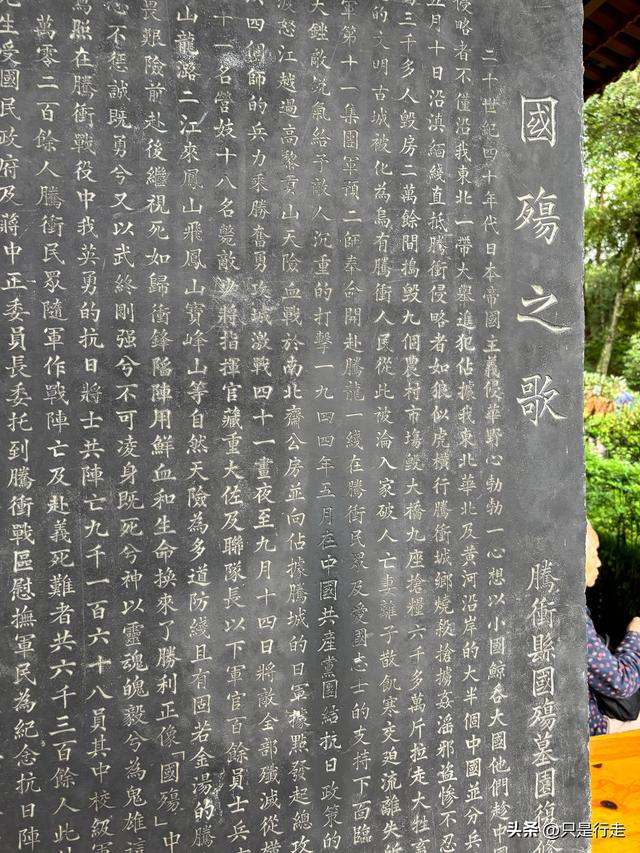 國殤之歌
騰衝縣國殤墓園復修
二十世紀四十年代日本帝國主義侵華野心勃勃一心想以小國鯨吞大國他們趁中
侵略者不僅沿我東北一帶大舉進犯佔據我東北華北及黃河沿岸的大半個中國並分兵
五月十日沿滇緬綫直抵騰衝侵略者如狼似虎橫行騰衝城鄉燒殺搶擄姦淫邪盜慘不忍
三千多人毀房二萬餘間搗毀九個農村市場毀大橋九座搶糧六千多萬斤拉走大牲畜
的文明古城被化為烏有騰衝人民從此被淪入家破人亡妻離子散飢寒交迫流離失所
軍第十一集團軍預二師奉命開赴騰龍一綫在騰衝民眾及愛國志士的支持下面臨
大挫敵銳氣給予敵人沉重的打擊一九四四年五月在中國共產黨團結抗日政策的
渡怒江越過高黎貢山天險血戰於南北齋公房並向佔據騰城的日軍據點發起總攻
四個師的兵力乘勝奮勇攻城激戰四十一晝夜至九月十四日將敵全部殲滅從
十一名營妓十八名斃敵少將指揮官藏重大佐及聯隊長以下軍官百餘員士兵
山龍潞二江來鳳山飛鳳山寶峰山等自然天險為多道防綫且有固若金湯的騰
畏艱險前赴後繼視死如歸衝鋒陷陣用鮮血和生命換來了勝利正像「國殤」中
心不懲誠既勇兮又以武終剛强兮不可凌身既死兮神以靈魂魄毅兮為鬼雄這
照在騰衝戰役中我英勇的抗日將士共陣亡九千一百六十八員其中校級軍
萬零二百餘人騰衝民眾隨軍作戰陣亡及赴義死難者共六千三百餘人此
先生受國民政府及蔣中正委員長委托到騰衝戰區慰撫軍民為紀念抗日陣
头条 @只是行走